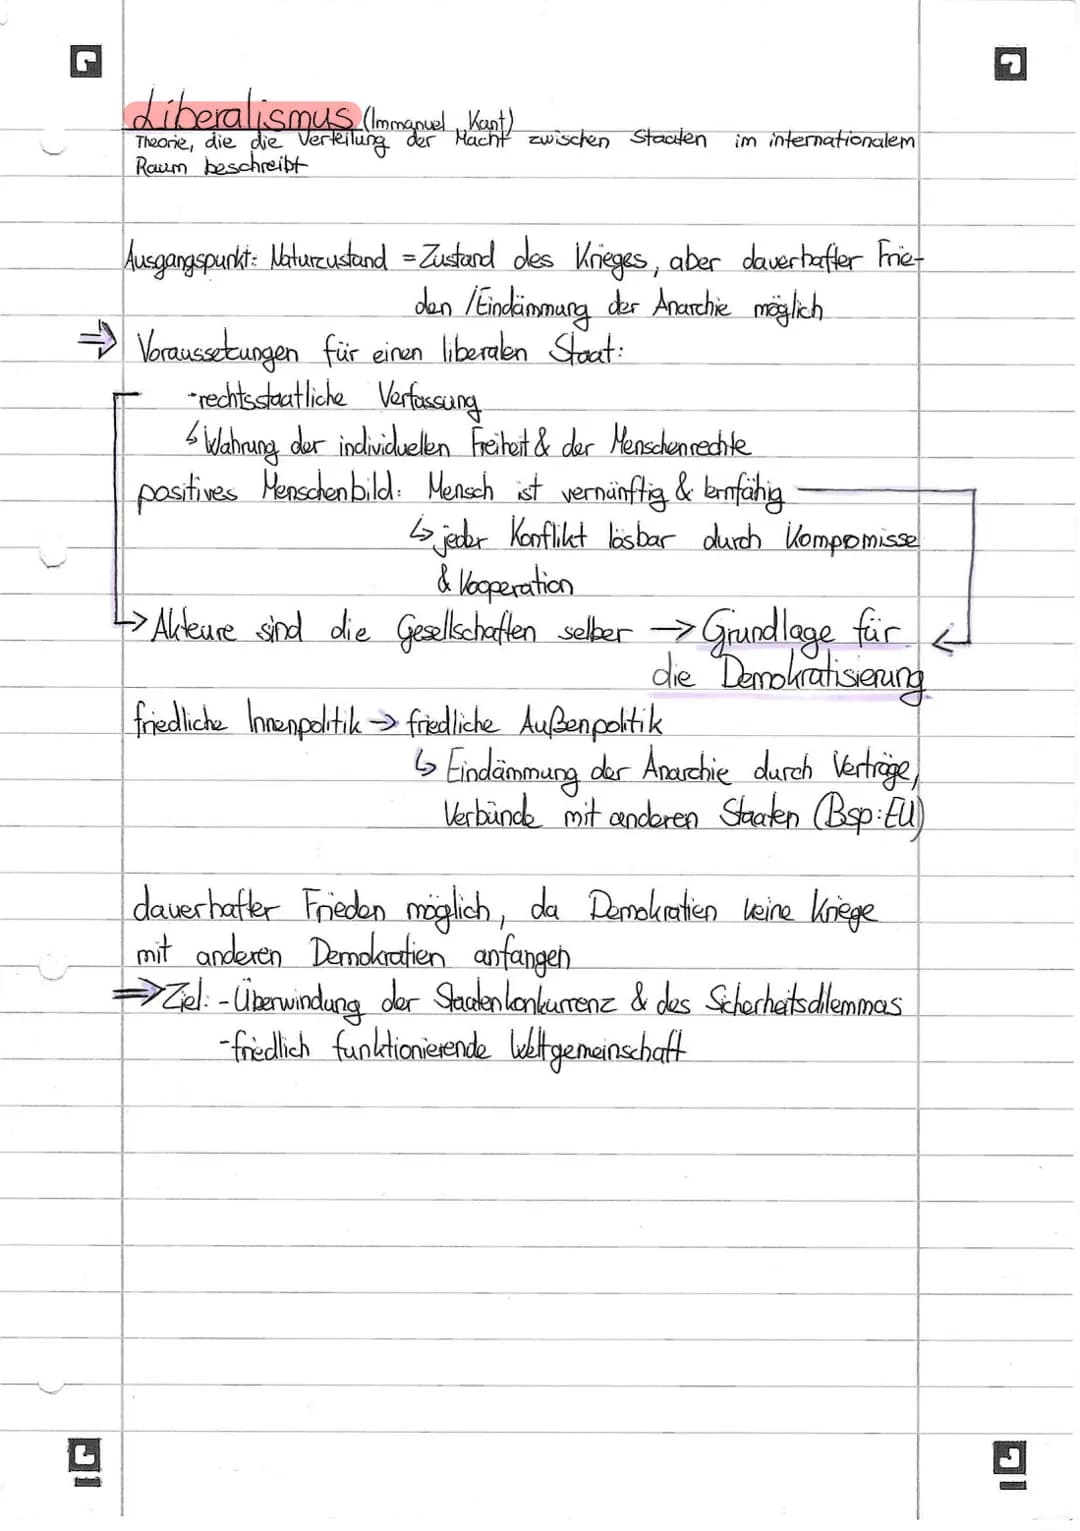 Liberalismus (Immanuel Kant)
Theorie, die die Verteilung der Macht zwischen Staaten im internationalem
Raum beschreibt
Ausgangspunkt: Naturzustand = Zustand des Krieges, aber dauerhafter Frie-
den / Eindämmung der Anarchie möglich
⇒ Voraussetzungen für einen liberalen Staat:
-rechtsstaatliche Verfassung
↳ Wahrung der individuellen Freiheit & der Menschenrechte
positives Menschenbild: Mensch ist vernünftig & lernfähig
↳ jeder Konflikt lösbar durch Kompromisse
& Kooperation
→ Akteure sind die Gesellschaften selber → Grundlage für
die Demokratisierung
friedliche Innenpolitik → friedliche Außenpolitik
↳ Eindämmung der Anarchie durch Verträge,
Verbünde mit anderen Staaten (Bsp: EU)
dauerhafter Frieden möglich, da Demokratien keine Kriege
mit anderen Demokratien anfangen
⇒ Ziel: - Überwindung der Staatenkonkurrenz & des Sicherheitsdilemmas
-friedlich funktionierende Weltgemeinschaft